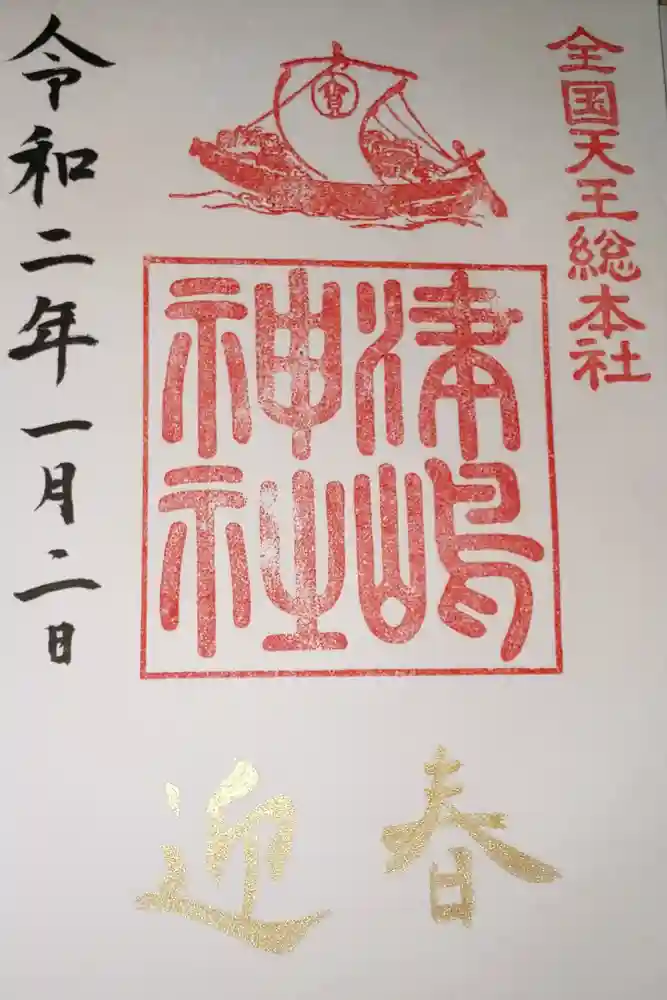 全国天王総本社
津嶋
神社
令和二年一月二日
迎春